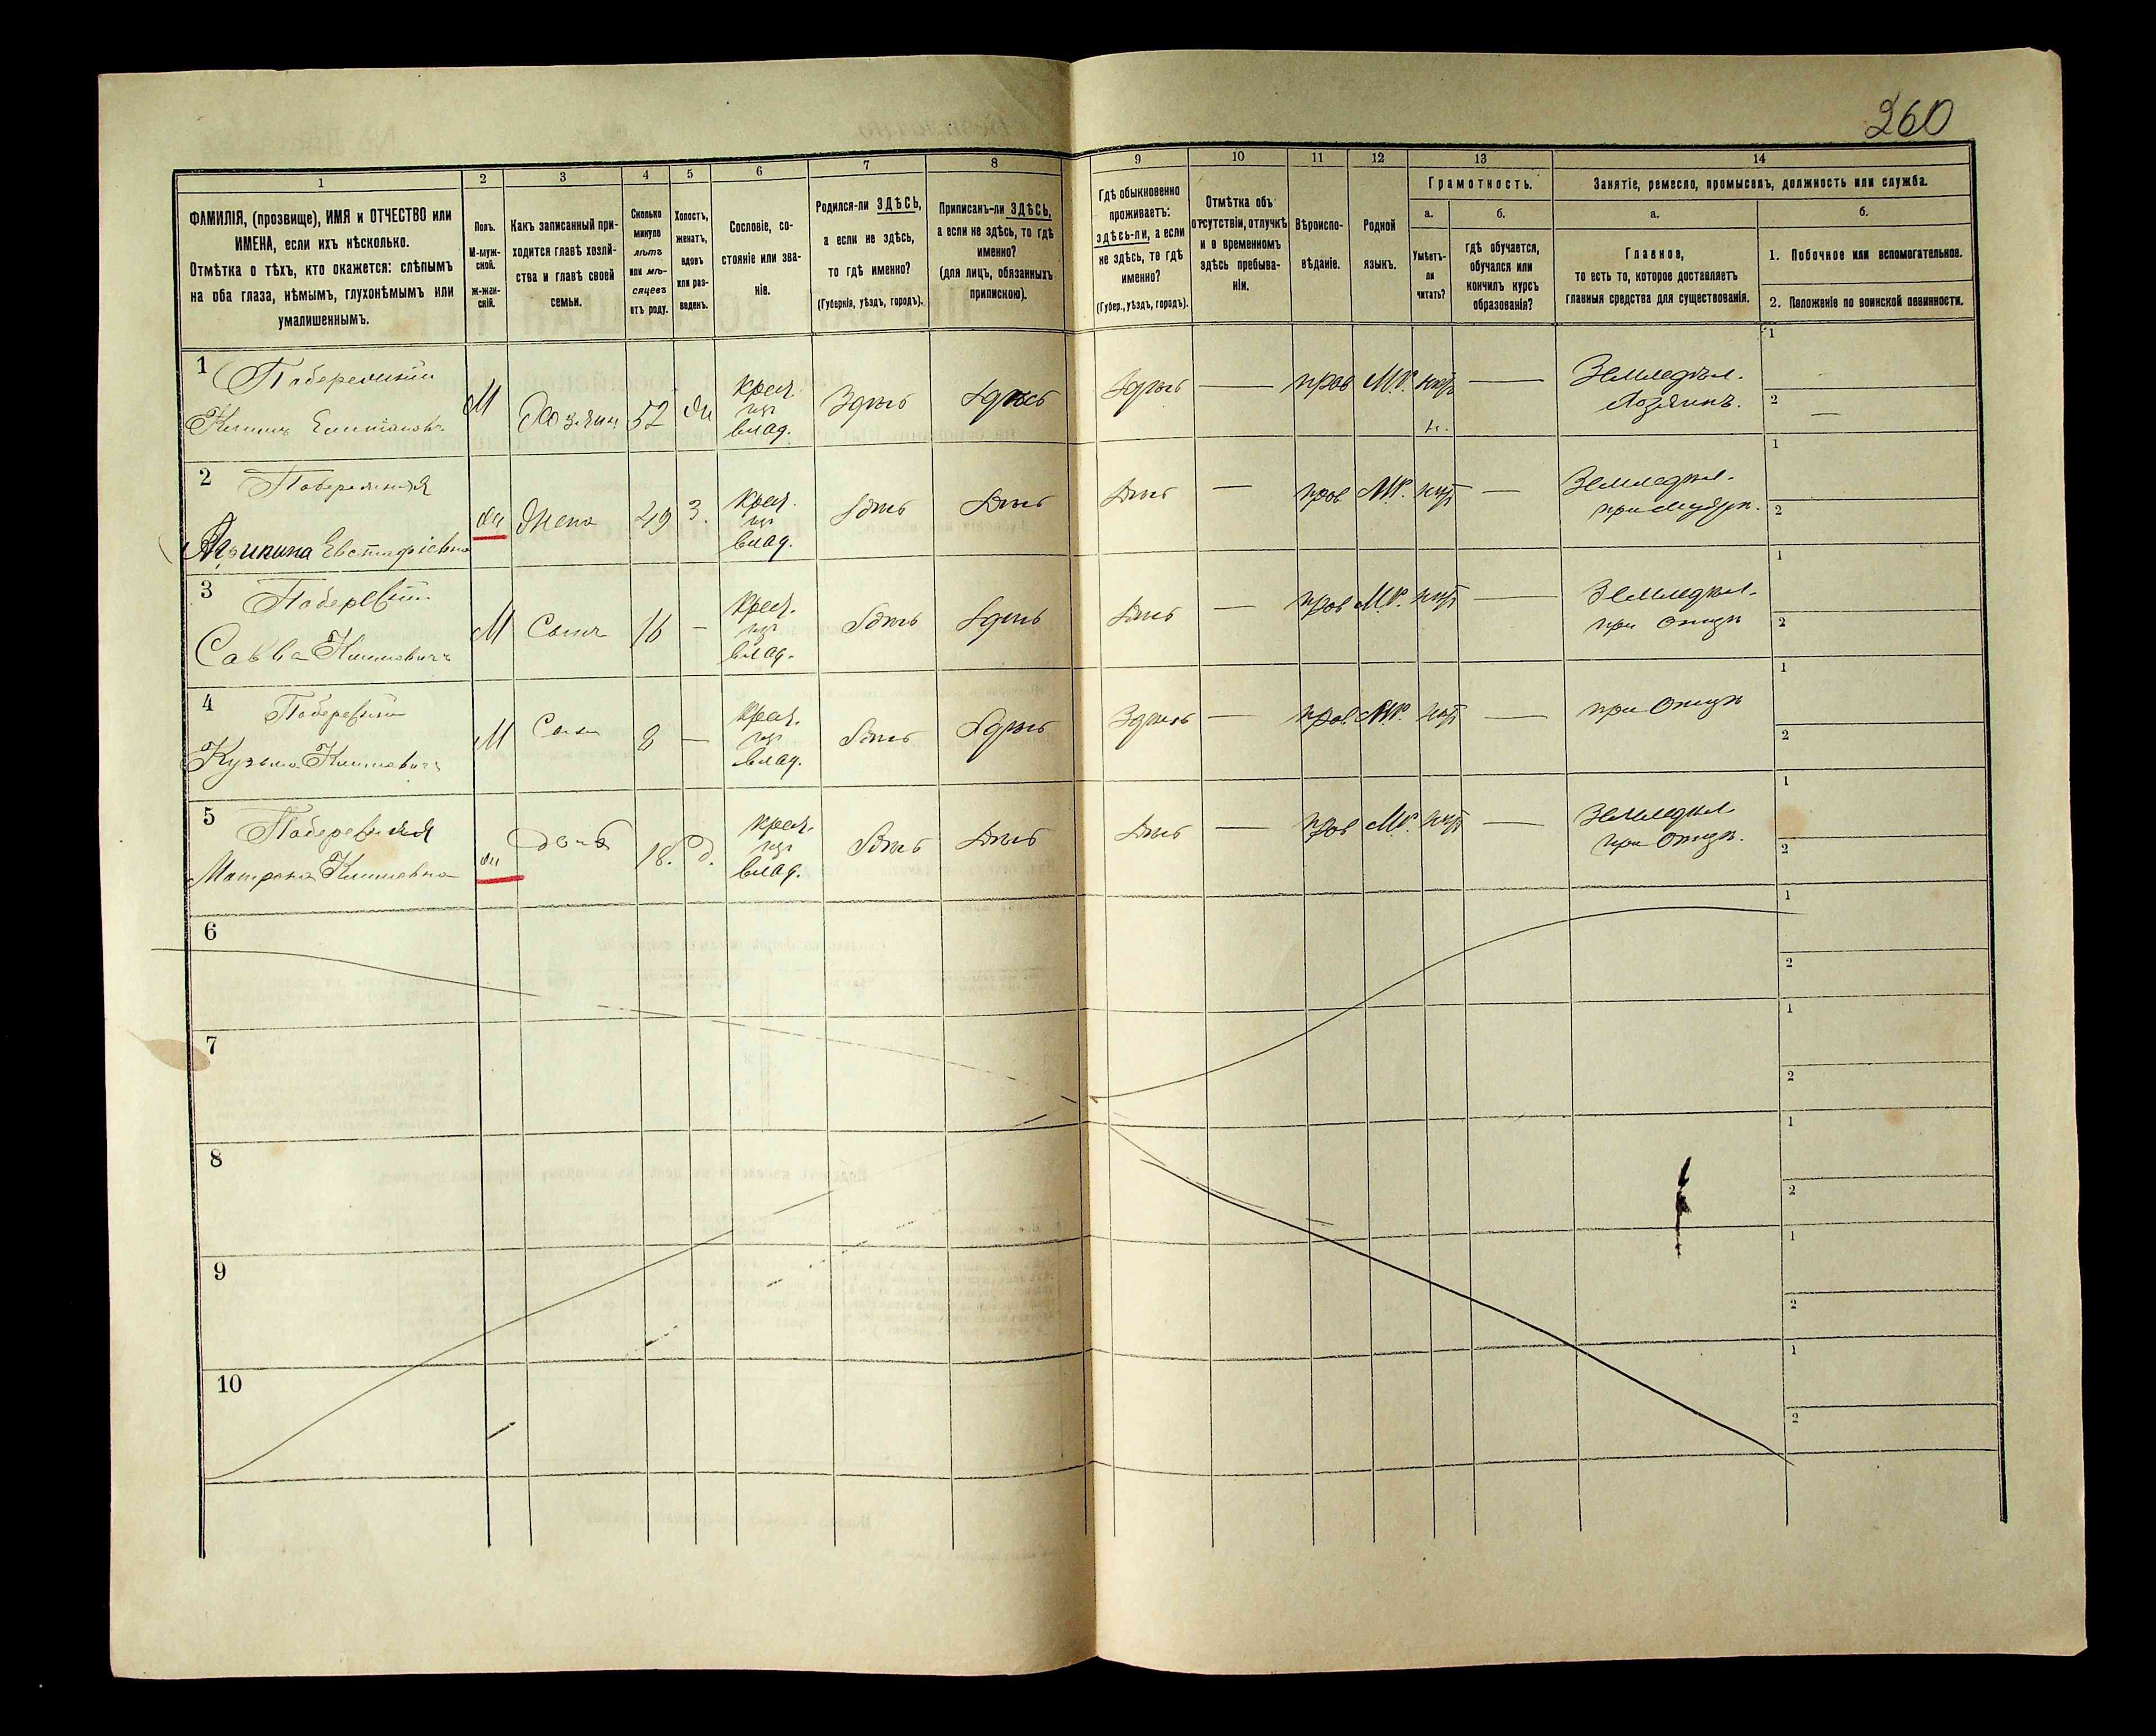 260
1 2 3 4 5 6 7 8 9 10 11 12 13 14
ФАМИЛІЯ, (прозвище), ИМЯ и ОТЧЕСТВО или
ИМЕНА, если ихъ нѣсколько.
Отмѣтка о тѣхъ, кто окажется: слѣпымъ
на оба глаза, нѣмымъ, глухонѣмымъ или
умалишеннымъ.
Полъ.
М-муж-
ской.
Ж-жен-
скій.
Какъ записанный при-
ходится главѣ хозяй-
ства и главѣ своей
семьи.
Сколько
минуло
лѣтъ
или мѣ-
сяцевъ
отъ роду.
Холостъ,
женатъ,
вдовъ
или раз-
веденъ.
Сословіе, со-
стояніе или зва-
ніе.
Родился-ли ЗДѢСЬ,
а если не здѣсь,
то гдѣ именно?
(Губернія, уѣздъ, городъ).
Приписанъ-ли ЗДѢСЬ,
а если не здѣсь, то гдѣ
именно?
(для лицъ, обязанныхъ
припискою).
Гдѣ обыкновенно
проживаетъ:
здѣсь-ли, а если
не здѣсь, то гдѣ
именно?
(Губер., уѣздъ, городъ).
Отмѣтка объ
отсутствіи, отлучкѣ
и о временномъ
здѣсь пребыва-
ніи.
Вѣроиспо-
вѣданіе.
Родной
языкъ.
Грамотность.
а.
Умѣетъ-
ли
читать?
б.
гдѣ обучается,
обучался или
кончилъ курсъ
образованія?
Занятіе, ремесло, промыселъ, должность или служба.
а.
Главное,
то есть то, которое доставляетъ
главныя средства для существованія.
б.
1. Побочное или вспомогательное.
2. Положеніе по воинской повинности.
1
М Хозяинъ 52 ж крест. из влад. Здѣсь Здѣсь Здѣсь — прав М.Р. нѣт — Земледѣл. Хозяинъ.
1
2 —
2
Евстафіевна ж Жена 49 З. крест. из влад. Здѣсь Здѣсь Здѣсь — прав М.Р. нѣт — Земледѣл. при
1
2
3
Савва Климовичъ М Сынъ 16 — крест. из влад. Здѣсь Здѣсь Здѣсь — прав М.Р. нѣт — Земледѣл. при Отцѣ
1
2
4
Кузьма Климовичъ М Сынъ 8 — крест. из влад. Здѣсь Здѣсь Здѣсь — прав М.Р. нѣт — при Отцѣ
1
2
5
Матрона Климовна ж дочь 18. д. крест. из влад. Здѣсь Здѣсь Здѣсь — прав М.Р. нѣт — Земледѣл при Отцѣ.
1
2
6
1
2
7
1
2
8
1
2
9
1
2
10
1
2